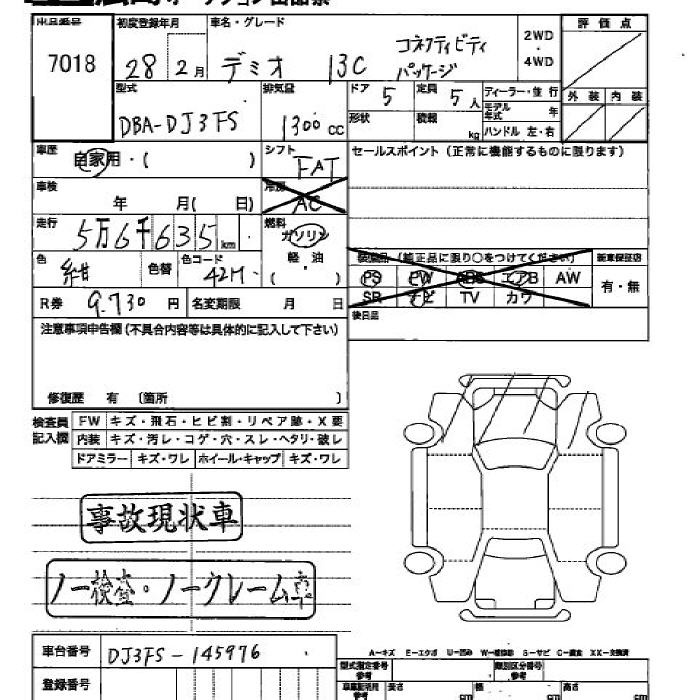 出品番号 初度登録年月 車名・グレード 評価点
7018 28年2月 デミオ 13C コネクティビティ パッケージ 2WD・4WD
外装 内装
型式 排気量 ドア 5 定員 5人 ディーラー・並行
DBA-DJ3FS 1300cc 形状 積載 kg モデル年式 年
ハンドル 左・右
車歴 自家用・( ) シフト FAT セールスポイント(正常に機能するものに限ります)
車検 年 月( 日) 冷房 AC
走行 5万6千635km 燃料 ガソリン
軽・油
( )
色 紺 色替 色コード 42M
装備品(純正品に限り○をつけてください) 新車保証書
PS PW ABS エアB AW 有・無
SR ナビ TV カワ
R券 9,730円 名変期限 月 日
後日品
注意事項申告欄(不具合内容等は具体的に記入して下さい)
修復歴 有〔箇所 〕
検査員記入欄 FW キズ・飛石・ヒビ割・リペア跡・X要
内装 キズ・汚レ・コゲ・穴・スレ・ヘタリ・破レ
ドアミラー キズ・ワレ ホイール・キャップ キズ・ワレ
事故現状車
ノー検査・ノークレーム車
A-キズ E-エクボ U-凹み W-補修跡 S-サビ C-腐食 XX-交換済
車台番号 DJ3FS-145976
型式指定番号 参考 類別区分番号 参考
登録番号
長さ cm 幅 cm 高さ cm